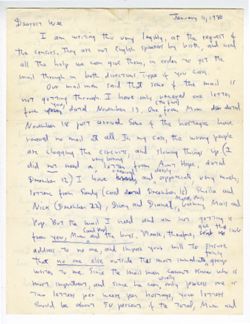 January 11, 1980
Dearest Love
I am writing this very legibly, at the request of
the censors. They are not English speakers by birth, and need
all the help we can give them, in order to get the
mail through in both directions. Type if you can.
Our mail men said that some of the mail is
not getting through. I have only received one letter
from dated November 19. One from Mom dated
November 18 just arrived. Some of the hostages have
received no mail at all. In my case, the wrong people
are clogging the circuits, and slowing things up (I
did not need a letter from Aunt Hope, dated
December 12) I have and appreciated very much,
letters from Sandy (card dated December 18) Sheila and
Nick (December 23), and Mom and
Pop. But the mail I need and am not getting is
from you, Mom and the boys. Please, therefore, give the
address to no one, and impose your will to ensure
that no one else outside this most immediate group
writes to me. Since the mail man cannot know who is
most important, and since he can only process one or
two letters per week per hostage, your letters
should be about 70 percent of the total, Mom and